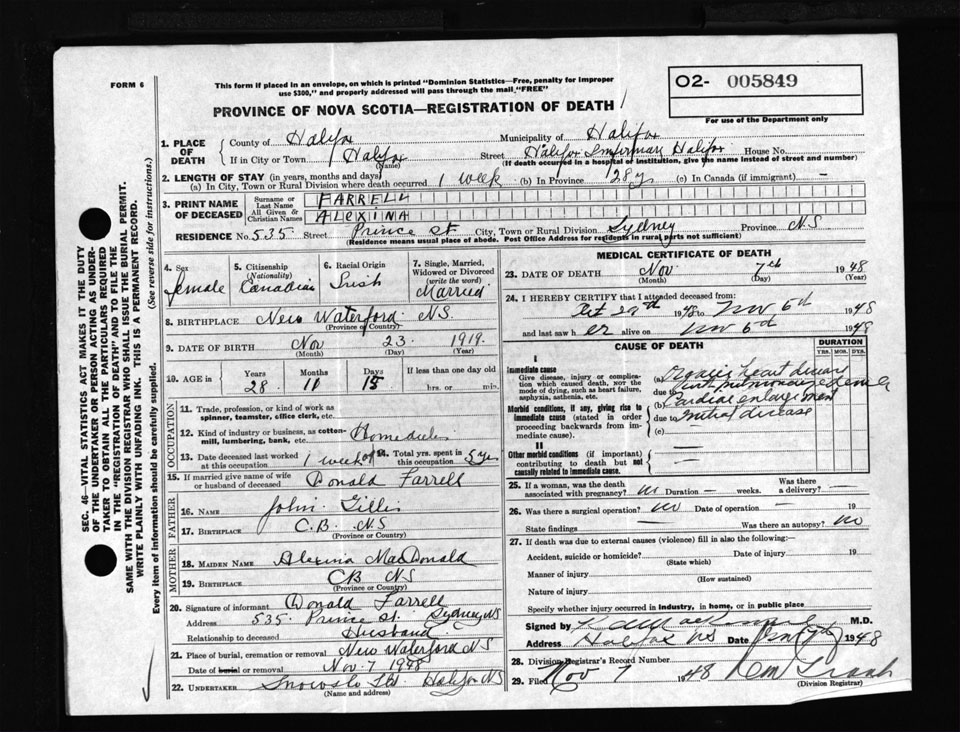 FORM 6
This form if placed in an envelope, on which is printed "Dominion Statistics—Free, penalty for improper
use $300," and properly addressed will pass through the mail "FREE"
O2- 005849
For use of the Department only
PROVINCE OF NOVA SCOTIA—REGISTRATION OF DEATH
1. PLACE OF DEATH
County of Halifax Municipality of Halifax
If in City or Town Halifax (Name) Street Halifax Infirmary Halifax House No.
(If death occurred in a hospital or institution, give the name instead of street and number)
2. LENGTH OF STAY (in years, months and days)
(a) In City, Town or Rural Division where death occurred 1 week (b) In Province 28 y (c) In Canada (if immigrant) —
3. PRINT NAME OF DECEASED
Surname or Last Name FARRELL
All Given & Christian Names ALEXINA
RESIDENCE No. 535 Street Prince St. City, Town or Rural Division Sydney Province NS
(Residence means usual place of abode. Post Office Address for residents in rural parts not sufficient)
4. Sex female
5. Citizenship (Nationality) Canadian
6. Racial Origin Irish
7. Single, Married, Widowed or Divorced (write the word) Married
8. BIRTHPLACE New Waterford NS.
(Province or Country)
9. DATE OF BIRTH Nov 23 1919
(Month) (Day) (Year)
10. AGE in Years 28 Months 11 Days 15 If less than one day hrs. or min.
OCCUPATION
11. Trade, profession, or kind of work as spinner, teamster, office clerk, etc.
12. Kind of industry or business, as cotton-mill, lumbering, bank, etc.
13. Date deceased last worked at this occupation 1 week
14. Total yrs. spent in this occupation 5 y
15. If married give name of wife or husband of deceased Donald Farrell
FATHER
16. NAME John Gillis
17. BIRTHPLACE C.B. N.S
(Province or Country)
MOTHER
18. MAIDEN NAME Alexina MacDonald
19. BIRTHPLACE CB NS
(Province or Country)
20. Signature of informant Donald Farrell
Address 535 Prince St. Sydney NS
Relationship to deceased Husband
21. Place of burial, cremation or removal New Waterford NS
Date of burial or removal Nov. 7 1948
22. UNDERTAKER Halifax NS
(Name and address)
MEDICAL CERTIFICATE OF DEATH
23. DATE OF DEATH Nov 7th 1948
(Month) (Day) (Year)
24. I HEREBY CERTIFY that I attended deceased from:
1948 to Nov 6th 1948
and last saw her alive on Nov 6th 1948
CAUSE OF DEATH
DURATION
YRS. MOS. DYS.
I
Immediate cause
Give disease, injury or complication which caused death, not the mode of dying, such as heart failure, asphyxia, asthenia, etc.
(a) Organic heart disease
due to with pulmonary edema
Morbid conditions, if any, giving rise to immediate cause (stated in order proceeding backwards from immediate cause).
(b) Cardiac enlargement
due to Mitral disease
(c) —
II
Other morbid conditions (if important) contributing to death but not causally related to immediate cause.
25. If a woman, was the death associated with pregnancy? no Duration — weeks. Was there a delivery? —
26. Was there a surgical operation? no Date of operation — 19
State findings — Was there an autopsy? no
27. If death was due to external causes (violence) fill in also the following:—
Accident, suicide or homicide? Date of injury 19
(State which)
Manner of injury
(How sustained)
Nature of injury
Specify whether injury occurred in industry, in home, or in public place
Signed by M.D.
Address Halifax NS Date 1948
28. Division Registrar's Record Number
29. Filed Nov 7 1948
(Division Registrar)
SEC. 46—VITAL STATISTICS ACT MAKES IT THE DUTY
OF THE UNDERTAKER OR PERSON ACTING AS UNDER-
TAKER TO OBTAIN ALL THE PARTICULARS REQUIRED
IN THE "REGISTRATION OF DEATH" AND TO FILE THE
SAME WITH THE DIVISION REGISTRAR WHO SHALL ISSUE THE BURIAL PERMIT.
WRITE PLAINLY WITH UNFADING INK. THIS IS A PERMANENT RECORD.
Every item of information should be carefully supplied. (See reverse side for instructions.)